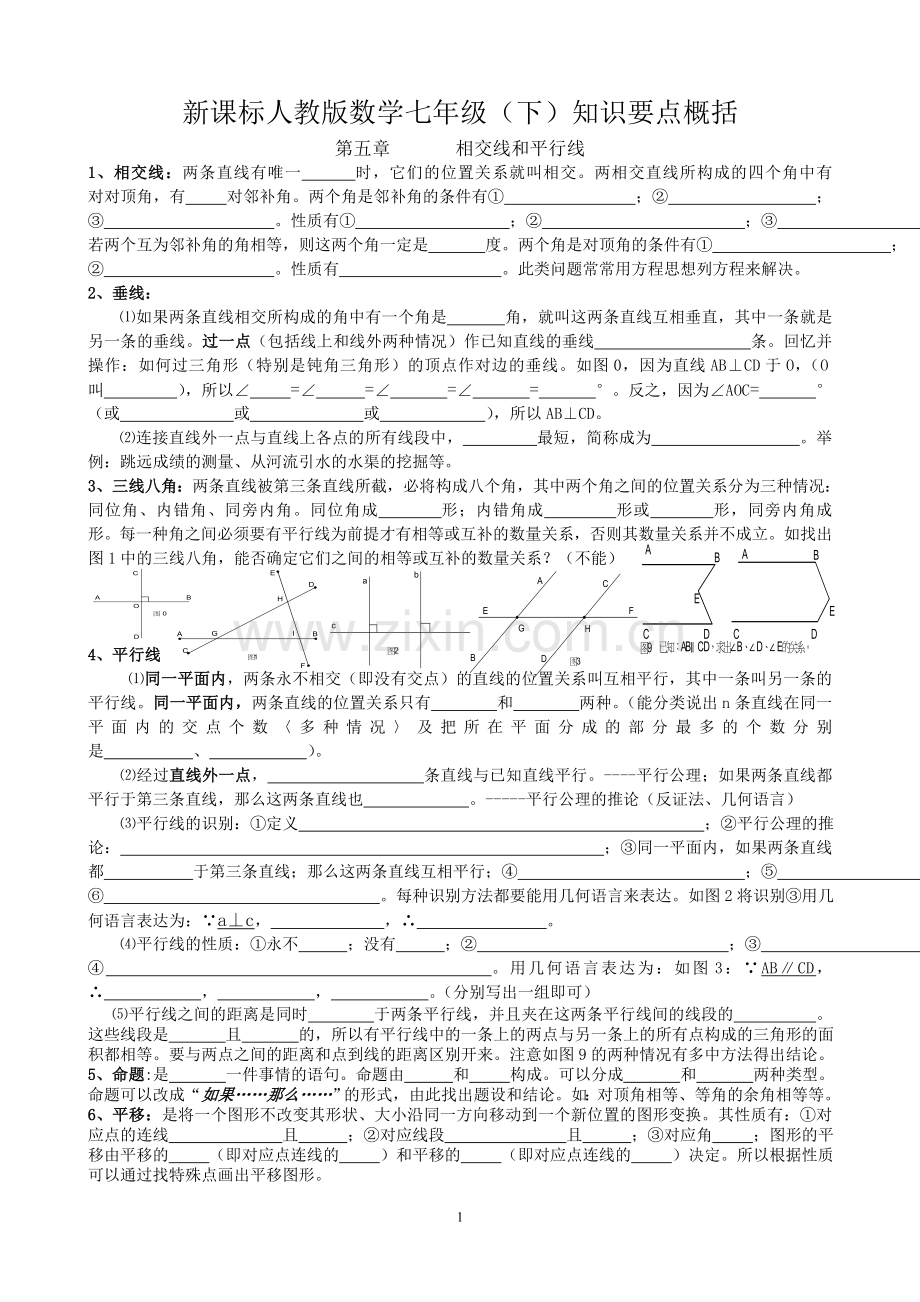 新课标人教版数学七年级（下）知识要点概括
第五章 相交线和平行线
1、相交线：两条直线有唯一______时，它们的位置关系就叫相交。两相交直线所构成的四个角中有
对对顶角，有____对邻补角。两个角是邻补角的条件有①____________；②____________；
③____________。性质有①____________；②____________；③____________
若两个互为邻补角的角相等，则这两个角一定是______度。两个角是对顶角的条件有①____________；
②____________。性质有____________。此类问题常常用方程思想列方程来解决。
2、垂线：
⑴如果两条直线相交所构成的角中有一个角是______角，就叫这两条直线互相垂直，其中一条就是
另一条的垂线。过一点（包括线上和线外两种情况）作已知直线的垂线____________条。回忆并
操作：如何过三角形（特别是钝角三角形）的顶点作对边的垂线。如图0，因为直线AB⊥CD于O，（O
叫________），所以∠____=∠____=∠____=∠____=____°。反之，因为∠AOC=____°
（或________或________或________），所以AB⊥CD。
⑵连接直线外一点与直线上各点的所有线段中，________最短，简称成为____________。举
例：跳远成绩的测量、从河流引水的水渠的挖掘等。
3、三线八角：两条直线被第三条直线所截，必将构成八个角，其中两个角之间的位置关系分为三种情况：
同位角、内错角、同旁内角。同位角成______形；内错角成______形或______形，同旁内角成
形。每一种角之间必须要有平行线为前提才有相等或互补的数量关系，否则其数量关系并不成立。如找出
图1中的三线八角，能否确定它们之间的相等或互补的数量关系？（不能）
C A B O D 图0
E D H A G I B C F 图1
a b c 图2
A C E F G H B D 图3
A B E C D A B E C D
图9 已知：AB∥CD，求出∠B、∠D、∠E的关系。
www.zixin.com.cn
4、平行线
⑴同一平面内，两条永不相交（即没有交点）的直线的位置关系叫互相平行，其中一条叫另一条的
平行线。同一平面内，两条直线的位置关系只有______和______两种。（能分类说出n条直线在同一
平面内的交点个数〈多种情况〉及把所在平面分成的部分最多的个数分别
是________、________）。
⑵经过直线外一点，____________条直线与已知直线平行。----平行公理；如果两条直线都
平行于第三条直线，那么这两条直线也________。-----平行公理的推论（反证法、几何语言）
⑶平行线的识别：①定义____________；②平行公理的推
论：____________；③同一平面内，如果两条直线
都________于第三条直线；那么这两条直线互相平行；④____________；⑤____________
⑥____________。每种识别方法都要能用几何语言来表达。如图2将识别③用几
何语言表达为：∵a⊥c，________，∴________。
⑷平行线的性质：①永不____；没有____；②____________；③____________
④____________。用几何语言表达为：如图3：∵AB∥CD，
∴________，________，________。（分别写出一组即可）
⑸平行线之间的距离是同时______于两条平行线，并且夹在这两条平行线间的线段的______。
这些线段是____且____的，所以有平行线中的一条上的两点与另一条上的所有点构成的三角形的面
积都相等。要与两点之间的距离和点到线的距离区别开来。注意如图9的两种情况有多中方法得出结论。
5、命题:是____一件事情的语句。命题由____和____构成。可以分成____和____两种类型。
命题可以改成“如果……那么……”的形式，由此找出题设和结论。如：对顶角相等、等角的余角相等等。
6、平移：是将一个图形不改变其形状、大小沿同一方向移动到一个新位置的图形变换。其性质有：①对
应点的连线________且____；②对应线段________且____；③对应角____；图形的平
移由平移的____（即对应点连线的____）和平移的____（即对应点连线的____）决定。所以根据性质
可以通过找特殊点画出平移图形。
1